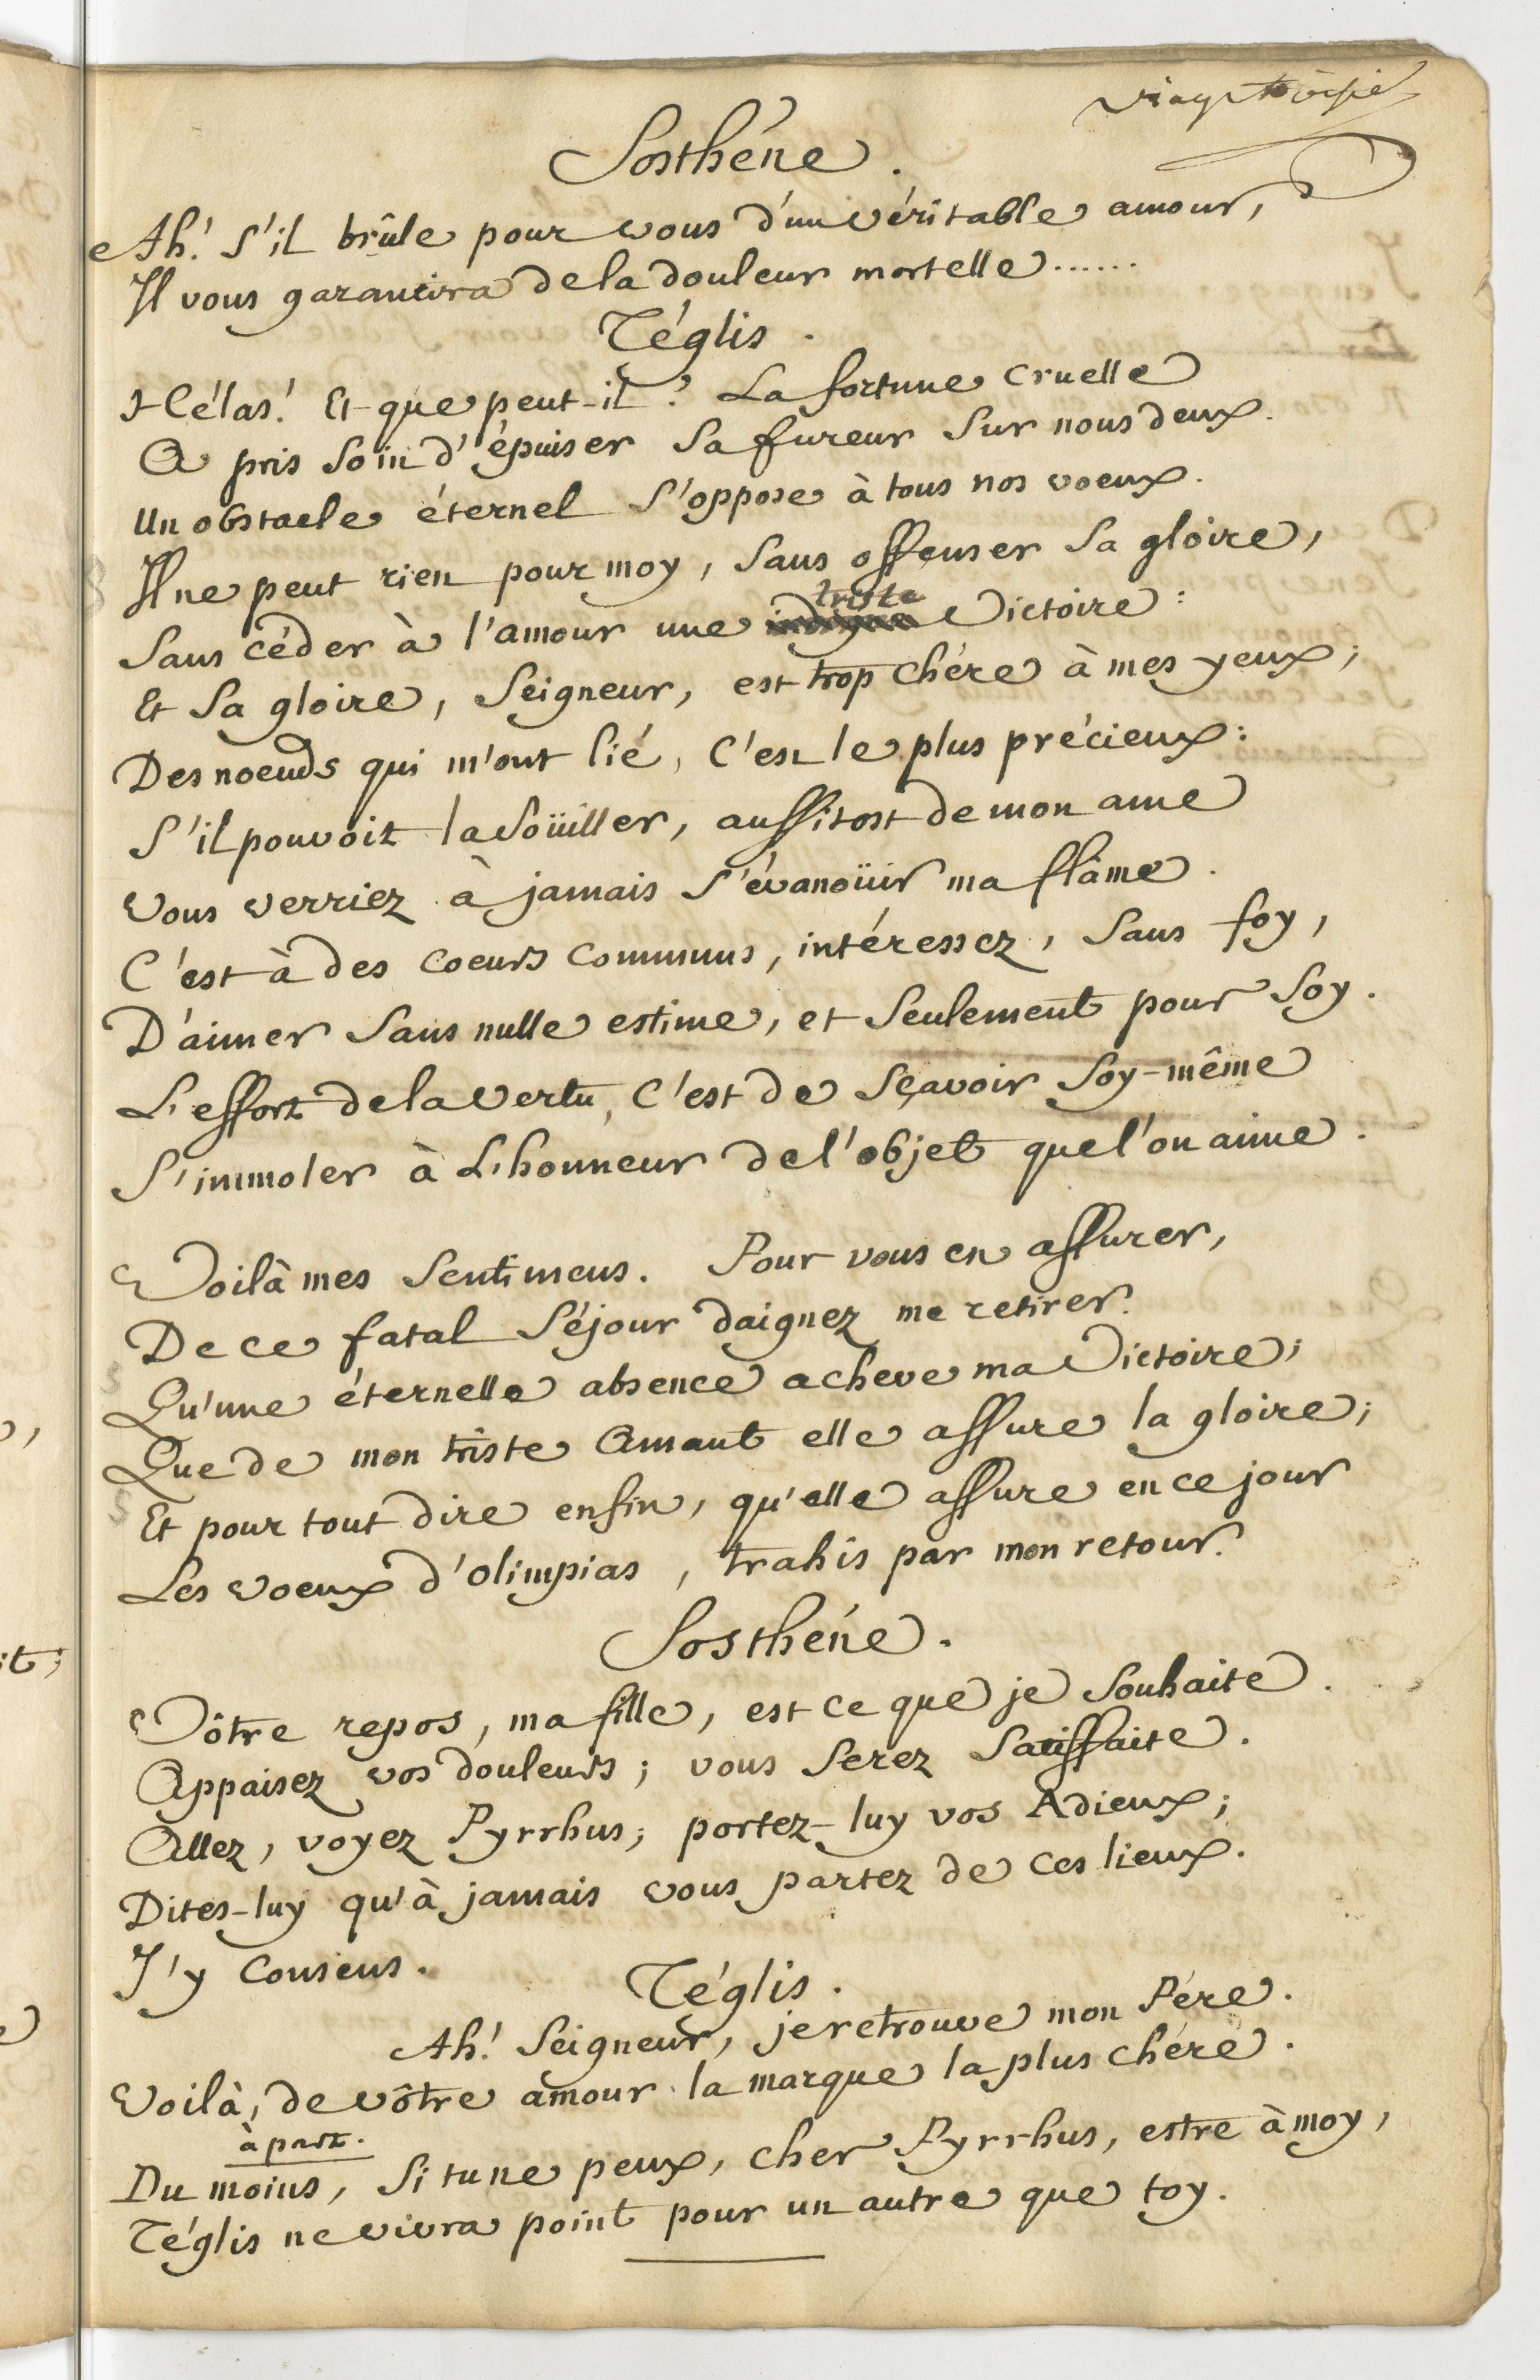 Sosthéne.
Ah! s'il brûle pour vous d'un véritable amour,
Il vous garantira de la douleur mortelle......
Téglis.
Hélas! Et que peut-il? La fortune cruelle
A pris soin d'épuiser sa fureur sur nous deux.
Un obstacle éternel s'oppose à tous nos voeux.
Il ne peut rien pour moy, sans offenser sa gloire,
triste
Sans céder à l'amour une indigne Victoire:
Et sa gloire, Seigneur, est trop chére à mes yeux;
Des noeuds qui m'ont lié, c'est le plus précieux:
S'il pouvoit la soüiller, aussitost de mon ame
Vous verriez à jamais s'évanoüir ma flâme.
C'est à des coeurs communs, intéressez, sans foy,
D'aimer sans nulle estime, et seulement pour soy.
L'effort de la Vertu, c'est de sçavoir soy-même
S'immoler à L'honneur de l'objet que l'on aime.
Voilà mes sentimens. Pour vous en assurer,
De ce fatal séjour daignez me retirer.
Qu'une éternelle absence acheve ma Victoire;
Que de mon triste Amant elle assure la gloire;
Et pour tout dire enfin, qu'elle assure en ce jour
Les voeux d'olimpias, trahis par mon retour.
Sosthéne.
Vôtre repos, ma fille, est ce que je souhaite.
Appaisez vos douleurs; vous serez satisfaite.
Allez, voyez Pyrrhus; portez-luy vos Adieux;
Dites-luy qu'à jamais vous partez de ces lieux.
J'y consens.
Téglis.
Ah! Seigneur, je retrouve mon Pére.
Voilà, de vôtre amour la marque la plus chére.
à part.
Du moins, si tu ne peux, cher Pyrrhus, estre à moy,
Téglis ne vivra point pour un autre que toy.